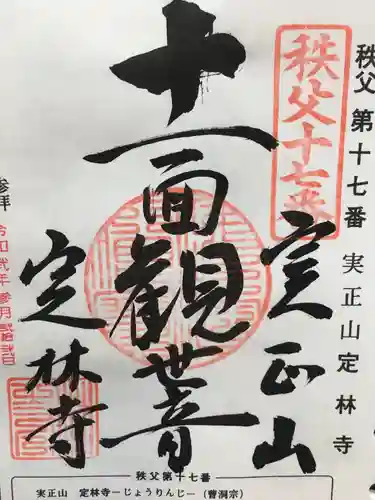 秩父 第十七番 実正山 定林寺
秩父十七番
実正山
十一面観世音
定林寺
参拝
秩父第十七番
実正山 定林寺ーじょうりんじー(曹洞宗)